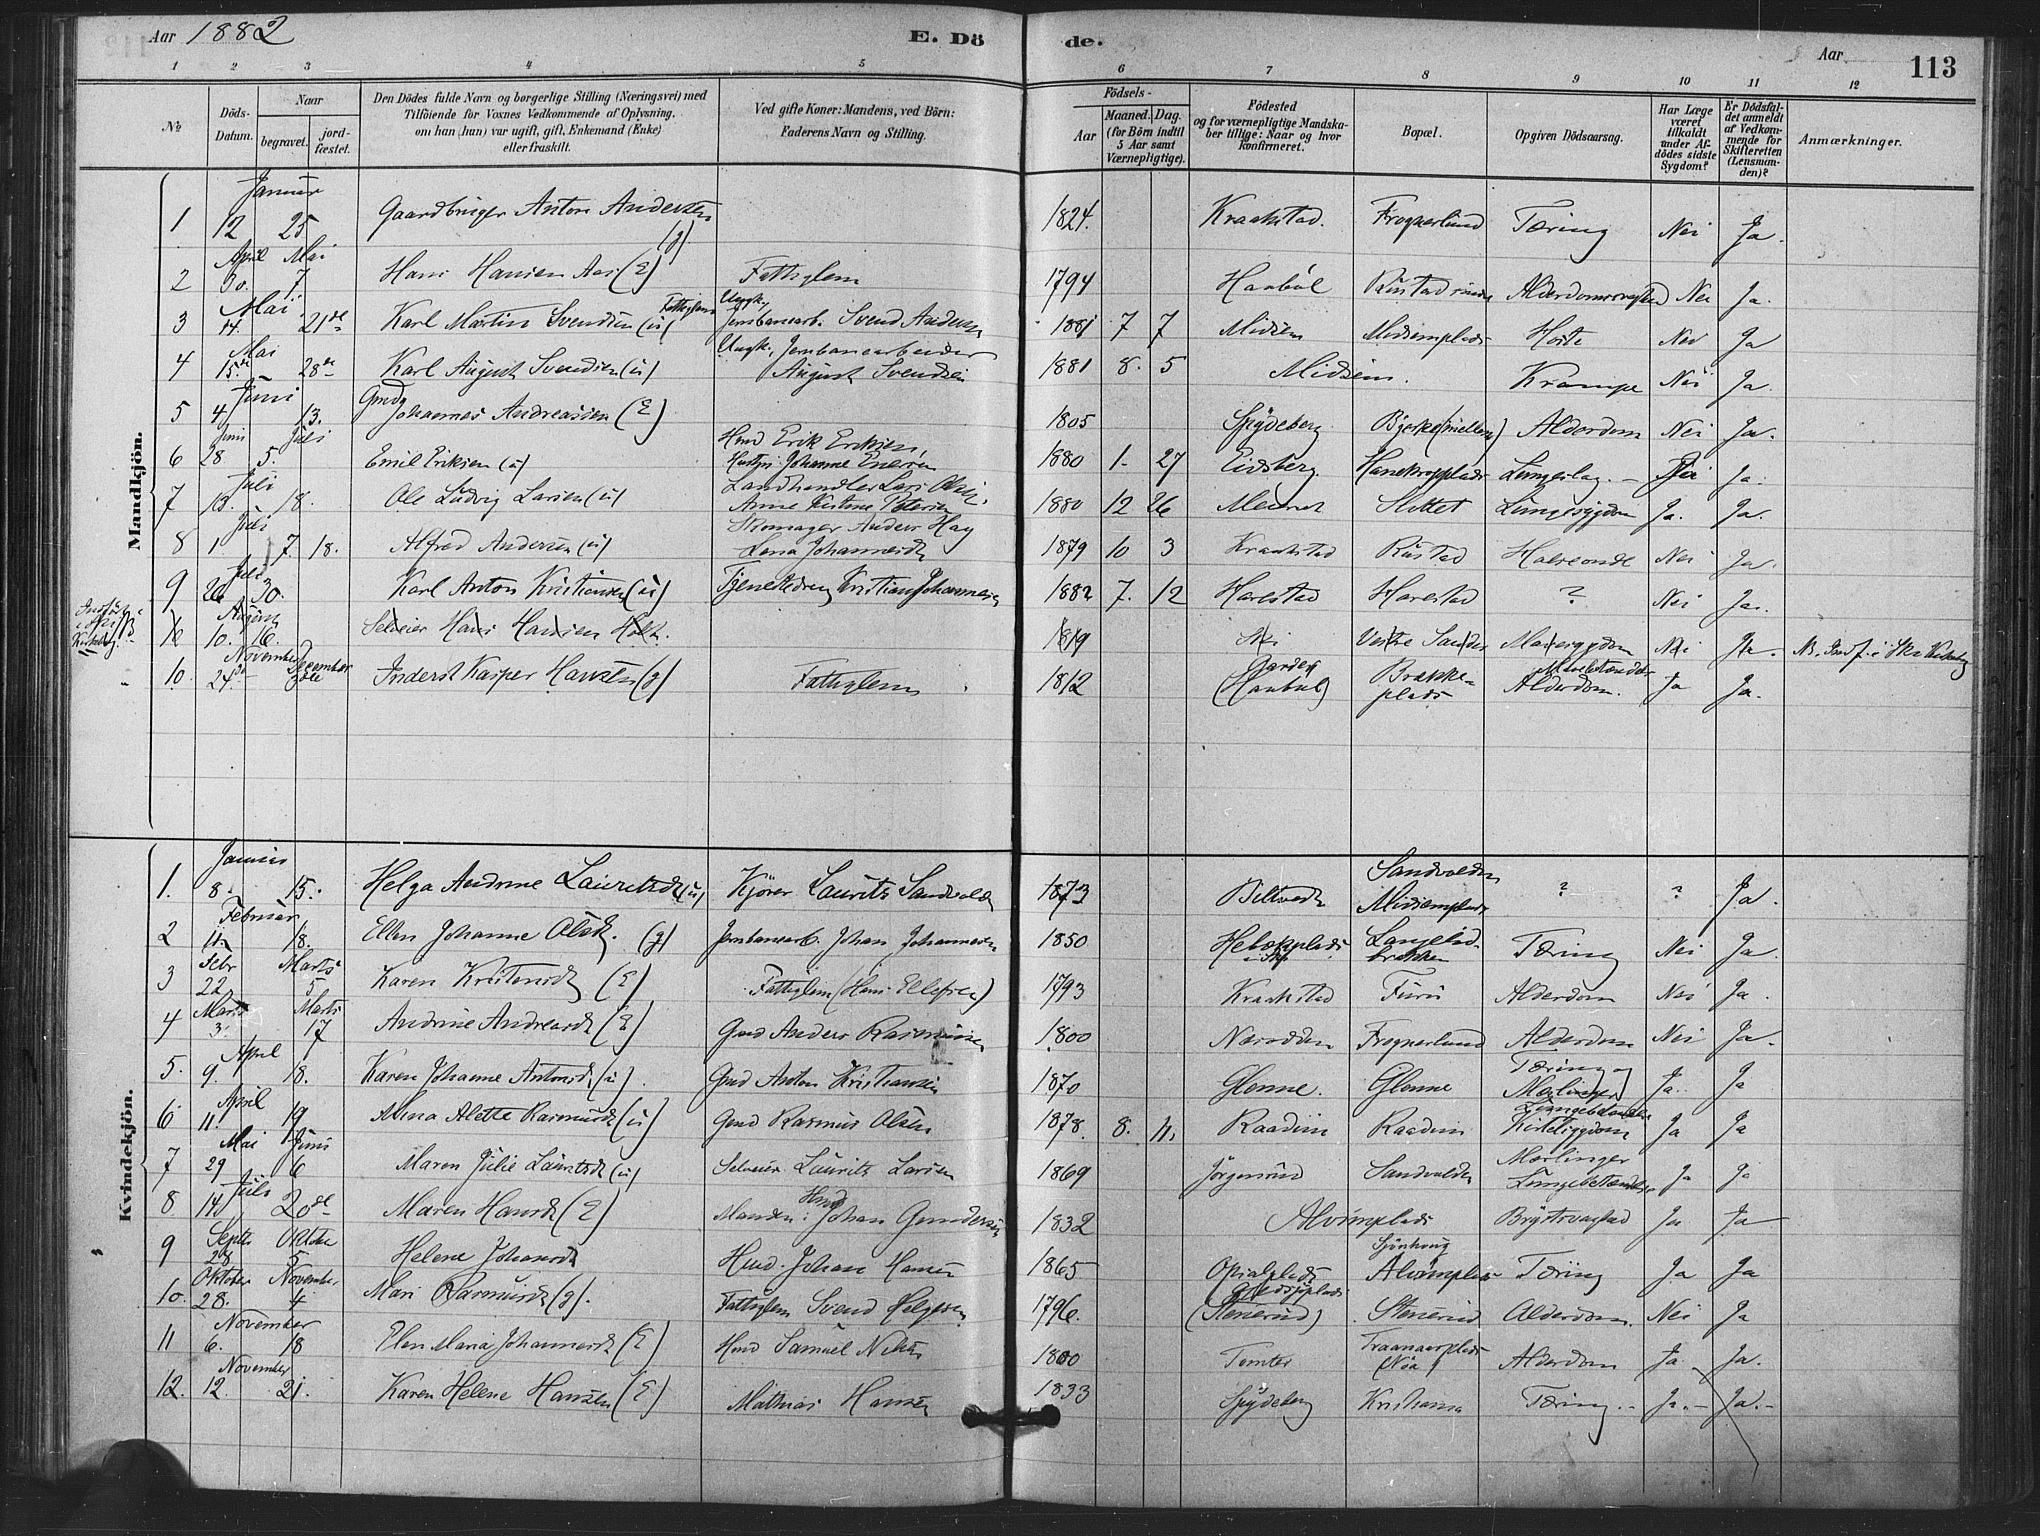 Aar 1882
E. Dö
de.
Aar
113
1 2 3 4 5 6 7 8 9 10 11 12
№
Döds-Datum.
Naar
begravet.
jordfæstet.
Den Dödes fulde Navn og borgerlige Stilling (Næringsvei) med
Tilföiende for Voxnes Vedkommende af Oplysning.
om han (hun) var ugift, gift, Enkemand (Enke)
eller fraskilt.
Ved gifte Koner: Mandens, ved Börn:
Faderens Navn og Stilling.
Födsels-
Aar
Maaned. Dag.
(for Börn indtil
5 Aar samt
Værnepligtige).
Födested
og for værnepligtige Mandskaber tillige: Naar og hvor
konfirmeret.
Bopæl.
Opgiven Dödsaarsag.
Har Læge
været
tilkaldt
under Afdödes sidste
Sygdom?
Er Dödsfaldet anmeldt
af Vedkommende for
Skifteretten
(Lensmanden)?
Anmærkninger.
Mandkjön.
Januar
1 12 25 Gaardbruger Anton Andersen (g) 1824. Kraakstad. Frognerlund Tæring Nei Ja.
April Mai
2 7 Hans Hansen Aas (E) Fattiglem 1794 Haabøl Alderdomssvaghed Nei Ja.
Mai
3 14. 21de Karl Martin Svendsen (u) Ungk. Jernbanearb. Svend Andersen 1881 7 7 Midsem Midsemplads Hoste Nei Ja
Mai
4 15de 28de Karl August Svendsen (u) Ungk., Jernbanearbeider August Svendsen 1881 8. 5 Midsem. Krampe Nei Ja.
Juni
5 4 13. Gmd Johannes Andreassen (E) 1805 Spydeberg Bjerke (mellem) Alderdom Nei Ja.
Juni Juli
6 28 5. Emil Eriksen (u) Hmd Erik Eriksen, Johanne 1880 1- 27 Eidsberg. Nei Ja.
Juli
7 13. 18. Ole Ludvig Larsen (u) Landhandler Lars Olsen. Anne Kristine Petersen 1880 12 26 Slottet Lungesygdom Ja. Ja.
Juli
8 1 7. 18. Alfred Andersen (u) Skomager Anders Lena Johannesdt 1879 10 3 Kraakstad Rustad Halsonde Nei Ja.
Juli
9 26 30. Karl Anton Kristiansen (u) Tjenestedreng Kristian Johannesen 1882 7. 12 Harestad Harestad ? Nei Ja.
August
10 10. 16. Selveier Hans Hansen Holt. 1819 Ski Vestre Sander Mavesygdom Nei Ja.
November December
10. 24de 3die Inderst Kasper Hansen (g) Fattiglem 1812 (Haabøl) Brækkeplads Alderdom. Ja Ja.
Kvindekjön.
Januar
1. 8. 15. Helga Andrine Lauritsdt (u) Kjører Laurits Sandvolden 1873 Sandvolden Midsemplads ? ? Ja.
Februar
2 11. 18. Ellen Johanne Olsdt. (g) Jernbanearb. Johan Johannesen 1850 Tæring Nei Ja.
Febr Marts
3 22 5 Karen Kristensdt (E) Fattiglem (Hans Ellefsen) 1793 Kraakstad Furu Alderdom Nei Ja.
Marts Marts
4 3. 17 Andrine Andreasdt (E) Gmd Anders Rasmussen 1800 Næsodden Frognerlund Alderdom Nei Ja.
April
5. 9. 18. Karen Johanne Antonsdt (u) Gmd Anton Kristiansen 1870 Glenne. Glenne Tæring og Mæslinger Ja. Ja
April
6. 11. 19 Mina Alette Rasmusdt (u) Gmd Rasmus Olsen 1878. 8. 11. Raadim Raadim Lungebetændelse Kirtelsygdom Ja Ja
Mai Juni
7 29 6 Maren Julie Lauritsdt (u) Selveier Laurits Larsen 1869 Jørgensrud Sandvolden Mæslinger Lungebetændelse Ja Ja
Juli
8 14 20de Maren Hansdt (E) Manden: Hmd Johan Gundersen 1832 Alvimplads Ja Ja
Septb Oktober
9 28 5. Helene Johansdt Hmd. Johan Hansen 1865 Alvimplads Tæring Ja Ja
Oktober November
10. 28. 4 Mari Rasmusdt (g). Fattiglem Svend Helgesen. 1796. (Stenerud) Stenerud Alderdom. Nei Ja
November
11 6. 18 Elen Maria Johannesdt (E) Hmd Samuel Nilsen 1800 Tomter Alderdom Ja. Ja.
November
12. 12. 21. Karen Helene Hansen (E) Mathias Hansen 1833 Spydeberg Kristiania Tæring. Ja. Ja.